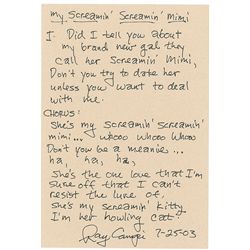 My Screamin' Screamin' Mimi
I. Did I tell you about
my brand new gal they
call her Screamin' Mimi,
Don't you try to date her
unless you want to deal
with me.
CHORUS:
She's my screamin' screamin'
mimi... whooo whooo whooo
Don't you be a meanie...
ha, ha, ha,
She's the one love that I'm
sure of that I can't
resist the lure of,
She's my screamin' kitty
I'm her howling cat.
Ray 7-25-03